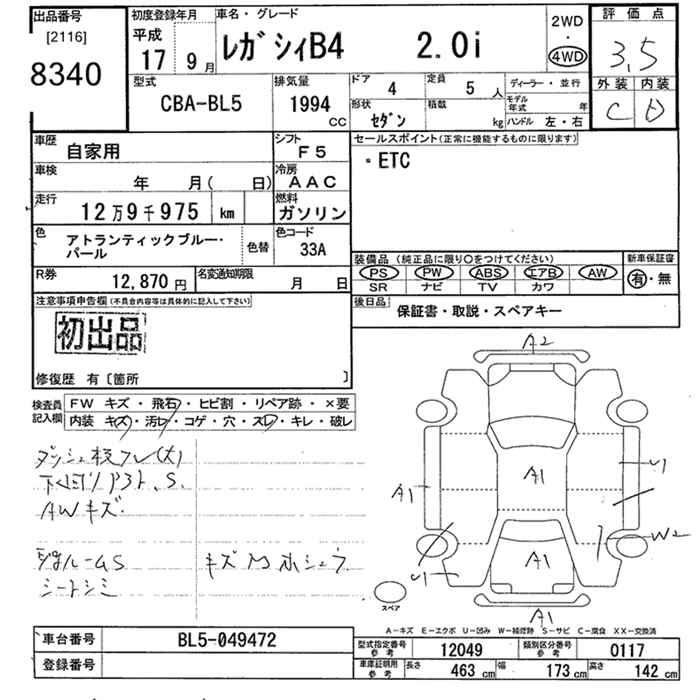 出品番号
[2116]
8340
初度登録年月
平成
17 9月
車名・グレード
レガシィB4 2.0i
2WD
・
4WD
評価点
3,5
外装 内装
C D
型式
CBA-BL5
排気量
1994
CC
ドア 4
定員 5 人
形状
セダン
積載
kg
ディーラー・並行
モデル年式 年
ハンドル 左・右
車歴
自家用
シフト
F5
車検
年 月( 日)
冷房
AAC
走行
12万9千975 km
燃料
ガソリン
色
アトランティックブルー・
パール
色替
色コード
33A
R券
12,870 円
名変通知期限
月 日
セールスポイント(正常に機能するものに限ります)
・ETC
装備品(純正品に限り○をつけてください)
PS PW ABS エアB AW
SR ナビ TV カワ
新車保証書
有・無
後日品
保証書・取説・スペアキー
注意事項申告欄(不具合内容等は具体的に記入して下さい)
初出品
修復歴 有〔箇所 〕
検査員
記入欄
FW キズ・飛石・ヒビ割・リペア跡・×要
内装 キズ・汚レ・コゲ・穴・スレ・キレ・破レ
下回り
S.
AWキズ
ルームS
シートシミ
キズ
A2
A1
A1
U1
W2
A1
U1
A1
スペア
A-キズ E-エクボ U-凹み W-補修跡 S-サビ C-腐食 XX-交換済
車台番号
BL5-049472
登録番号
型式指定番号
参考
12049
類別区分番号
参考
0117
車庫証明用
参考
長さ 463 cm
幅 173 cm
高さ 142 cm